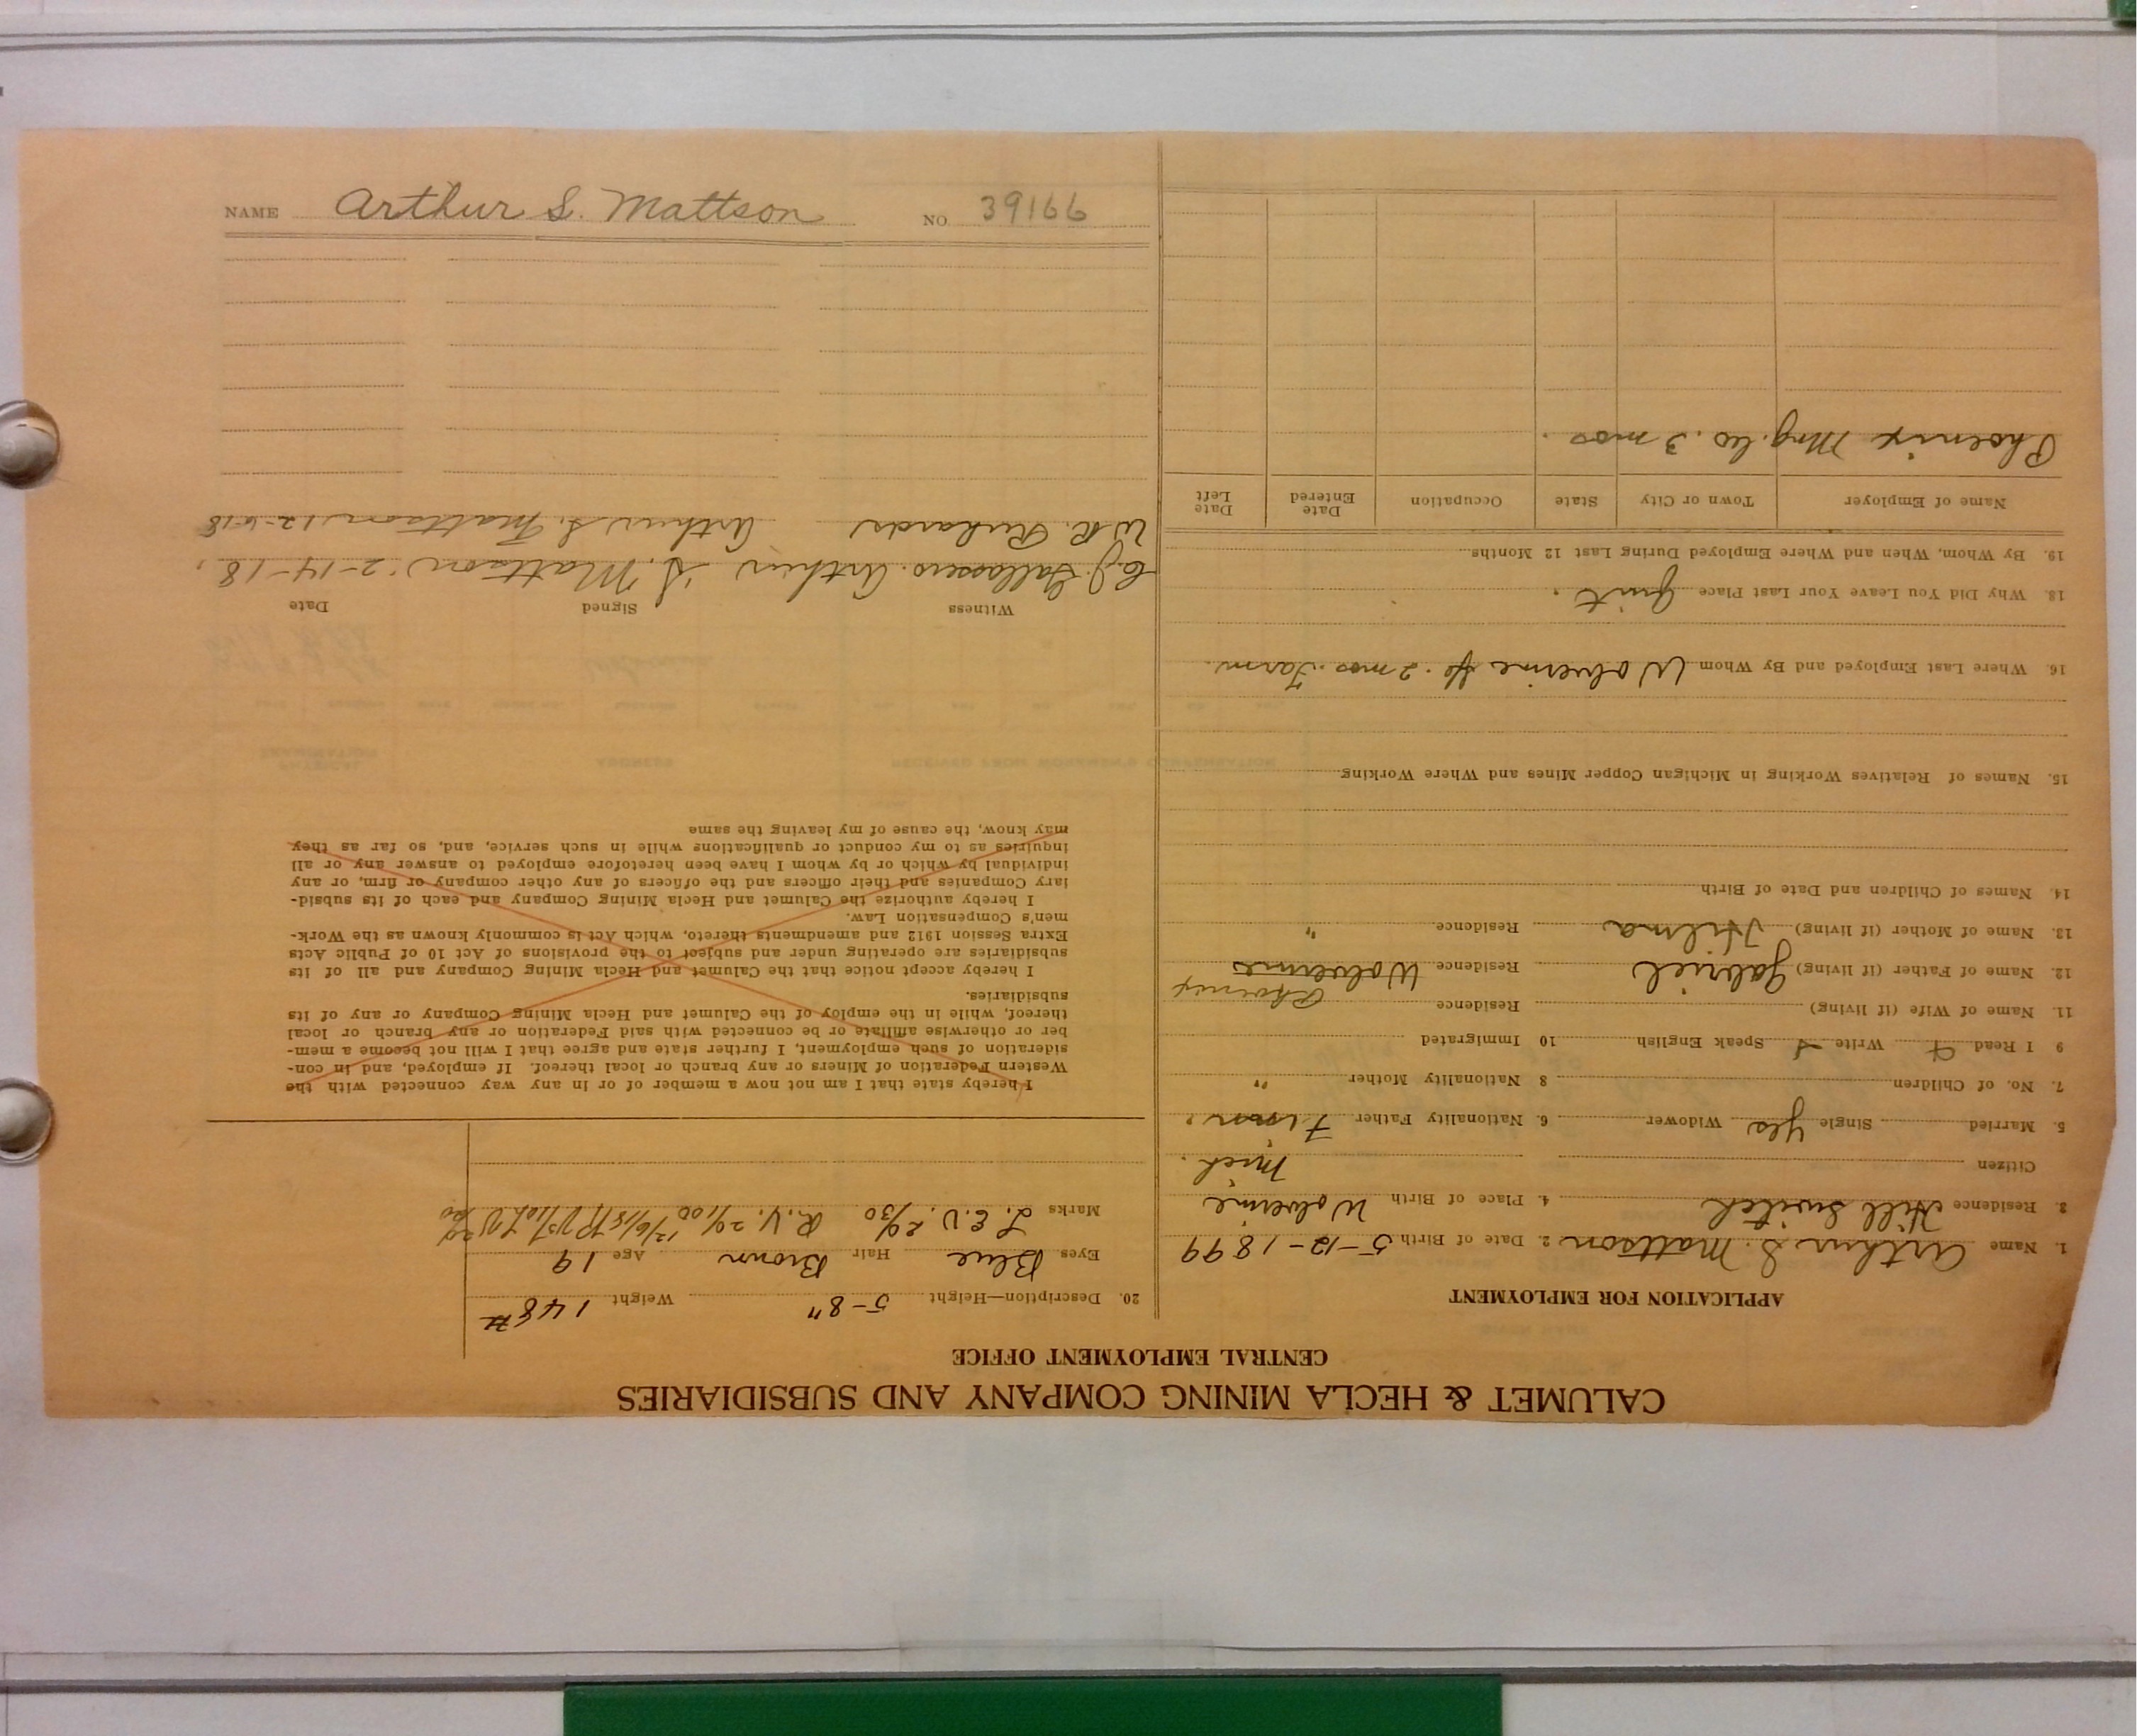 CALUMET & HECLA MINING COMPANY AND SUBSIDIARIES
CENTRAL EMPLOYMENT OFFICE
APPLICATION FOR EMPLOYMENT
1. Name Arthur S. Mattson 2. Date of Birth 5-12-1899
3. Residence Hill Switch 4. Place of Birth Wolverine
Citizen Mich.
5. Married Single Yes Widower 6. Nationality Father Finn.
7. No. of Children 8 Nationality Mother "
9 I Read Write Speak English 10 Immigrated
11. Name of Wife (if living) Residence Phoenix
12. Name of Father (if living) Gabriel Residence Wolverine
13. Name of Mother (if living) Hilma Residence "
14. Names of Children and Date of Birth
15. Names of Relatives Working in Michigan Copper Mines and Where Working
16. Where Last Employed and By Whom Wolverine 2 mos. Farm
18. Why Did You Leave Your Last Place Quit.
19. By Whom, When and Where Employed During Last 12 Months
Name of Employer Town or City State Occupation Date Entered Date Left
Phoenix Mng. Co. 3 mos.
20. Description—Height 5-8" Weight 148#
Eyes Blue Hair Brown Age 19
Marks L.E.V. 20/30 R.V. 20/100
I hereby state that I am not now a member of or in any way connected with the
Western Federation of Miners or any branch or local thereof. If employed, and in con-
sideration of such employment, I further state and agree that I will not become a mem-
ber or otherwise affiliate or be connected with said Federation or any branch or local
thereof, while in the employ of the Calumet and Hecla Mining Company or any of its
subsidiaries.
I hereby accept notice that the Calumet and Hecla Mining Company and all of its
subsidiaries are operating under and subject to the provisions of Act 10 of Public Acts
Extra Session 1912 and amendments thereto, which Act is commonly known as the Work-
men's Compensation Law.
I hereby authorize the Calumet and Hecla Mining Company and each of its subsid-
iary Companies and their officers and the officers of any other company or firm, or any
individual by which or by whom I have been heretofore employed to answer any or all
inquiries as to my conduct or qualifications while in such service, and, so far as they
may know, the cause of my leaving the same
Witness Signed Date
C.J. Arthur S. Mattson 2-14-18
W.R. Richards Arthur S. Mattson 12-6-18
NAME Arthur S. Mattson NO 39166